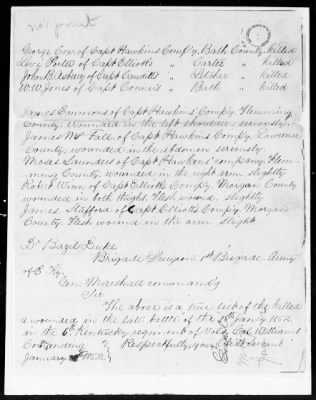 not permit
George Cox of Capt Hawkins Comp'y, Bath County, killed
Levi Porter of Capt Elliott's " Carter " killed
John Bilsbury of Capt Caudill's " Letcher " killed
W. W. Jones of Capt Conner's " Bath " killed
James Emmons of Capt Hawkins Comp'y. Flemming
County. Wounded in the left shoulder - seriously.
James Mc Fall of Capt Hawkins Comp'y, Lawrence
County, wounded in the abdomen seriously.
Moses Saunders of Capt Hawkins' company, Flem-
ming County, wounded in the right arm, slightly
Robert Winn of Capt Elliott's Comp'y Morgan County
wounded in both thighs. Flesh wound. slightly
James Stafford of Capt Elliott's Comp'y, Morgan
County. Flesh wound in the arm slight
Dr Bazil Duke
Brigade Surgeon 1st Brigade Army
of E. Ky.
Gen Marshall comanding
Sir
The above is a true list of the killed
& wounded in the late battle of the 10th Jan'y 1862
in the 6th Kentucky regiment of Vols, Col Williams
Co'manding Respectfully yours
January 1862